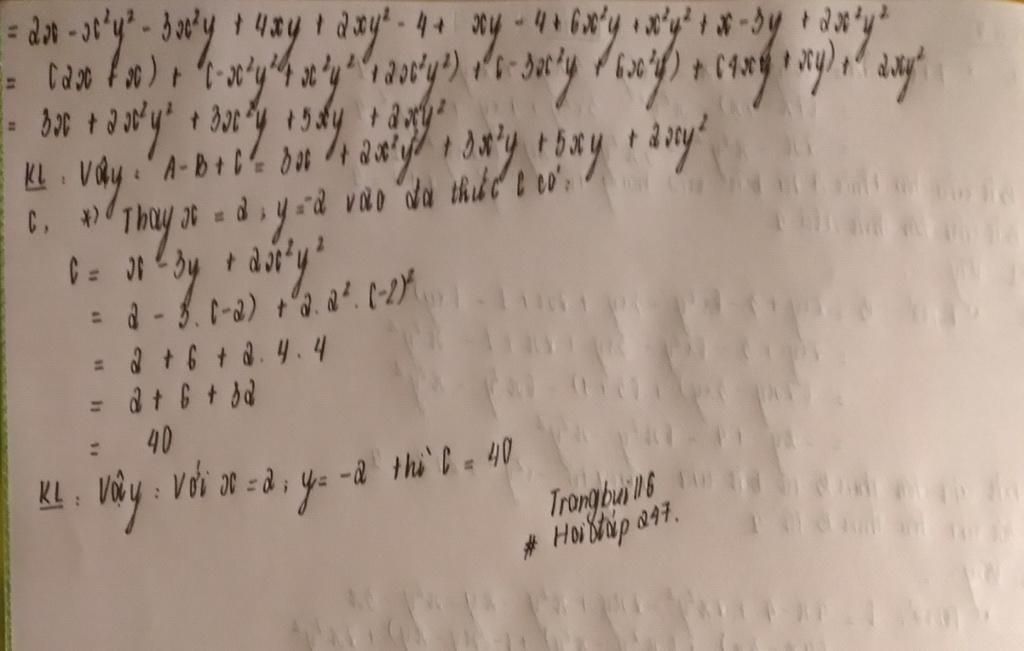 = 2x - x²y² - 3x²y + 4xy + 2xy² - 4 + xy - 4 + 6x²y + x²y² + x - 3y + 2x²y²
= (2x + x) + (-x²y² + x²y² + 2x²y²) + (-3x²y + 6x²y) + (4xy + xy) + 2xy²
= 3x + 2x²y² + 3x²y + 5xy + 2xy²
KL : Vậy : A - B + C = 3x + 2x²y² + 3x²y + 5xy + 2xy²
C, *) Thay x = 2 ; y = -2 vào đa thức C có :
C = x - 3y + 2x²y²
= 2 - 3. (-2) + 2. 2² . (-2)²
= 2 + 6 + 2. 4 . 4
= 2 + 6 + 32
= 40
KL : Vậy : Với x = 2 ; y = -2 thì C = 40
Trangbui116
# Hoiđáp 247.